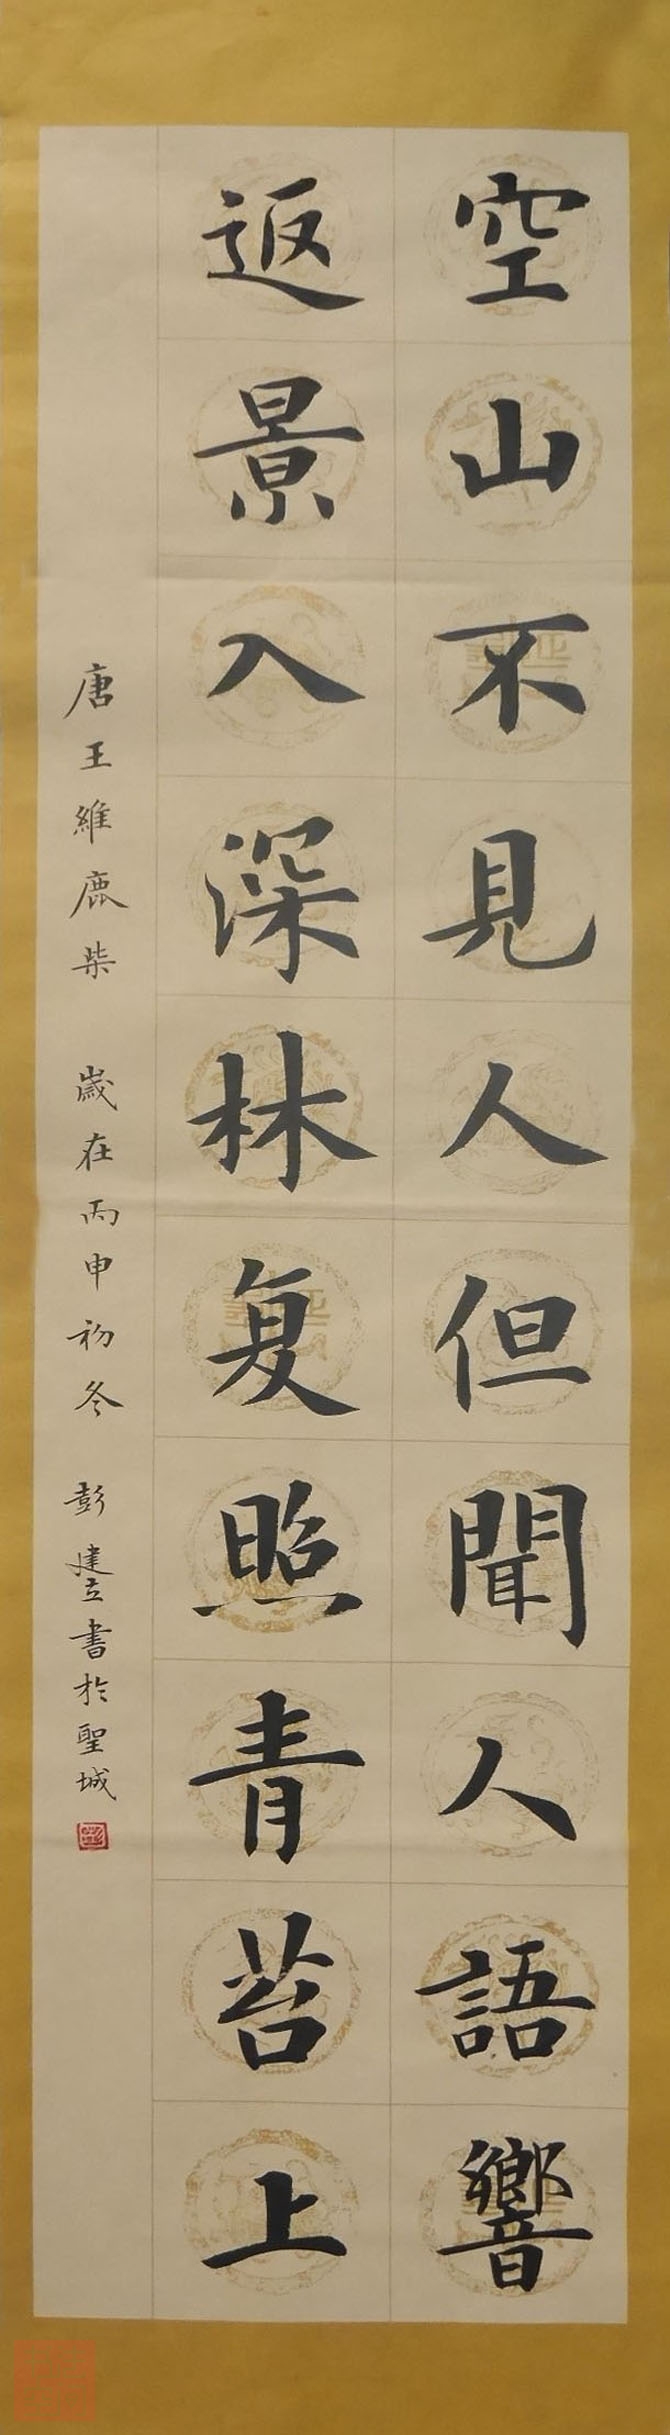 空山不見人但聞人語響
返景入深林复照青苔上
唐王維鹿柴 歲在丙申初冬 彭建立書於聖城